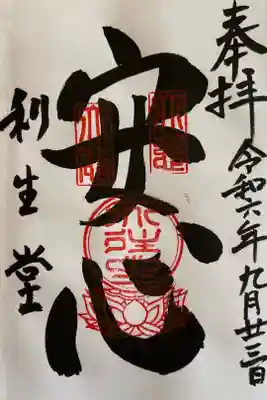 奉拝
令和六年九月廿三日
安心
利生堂